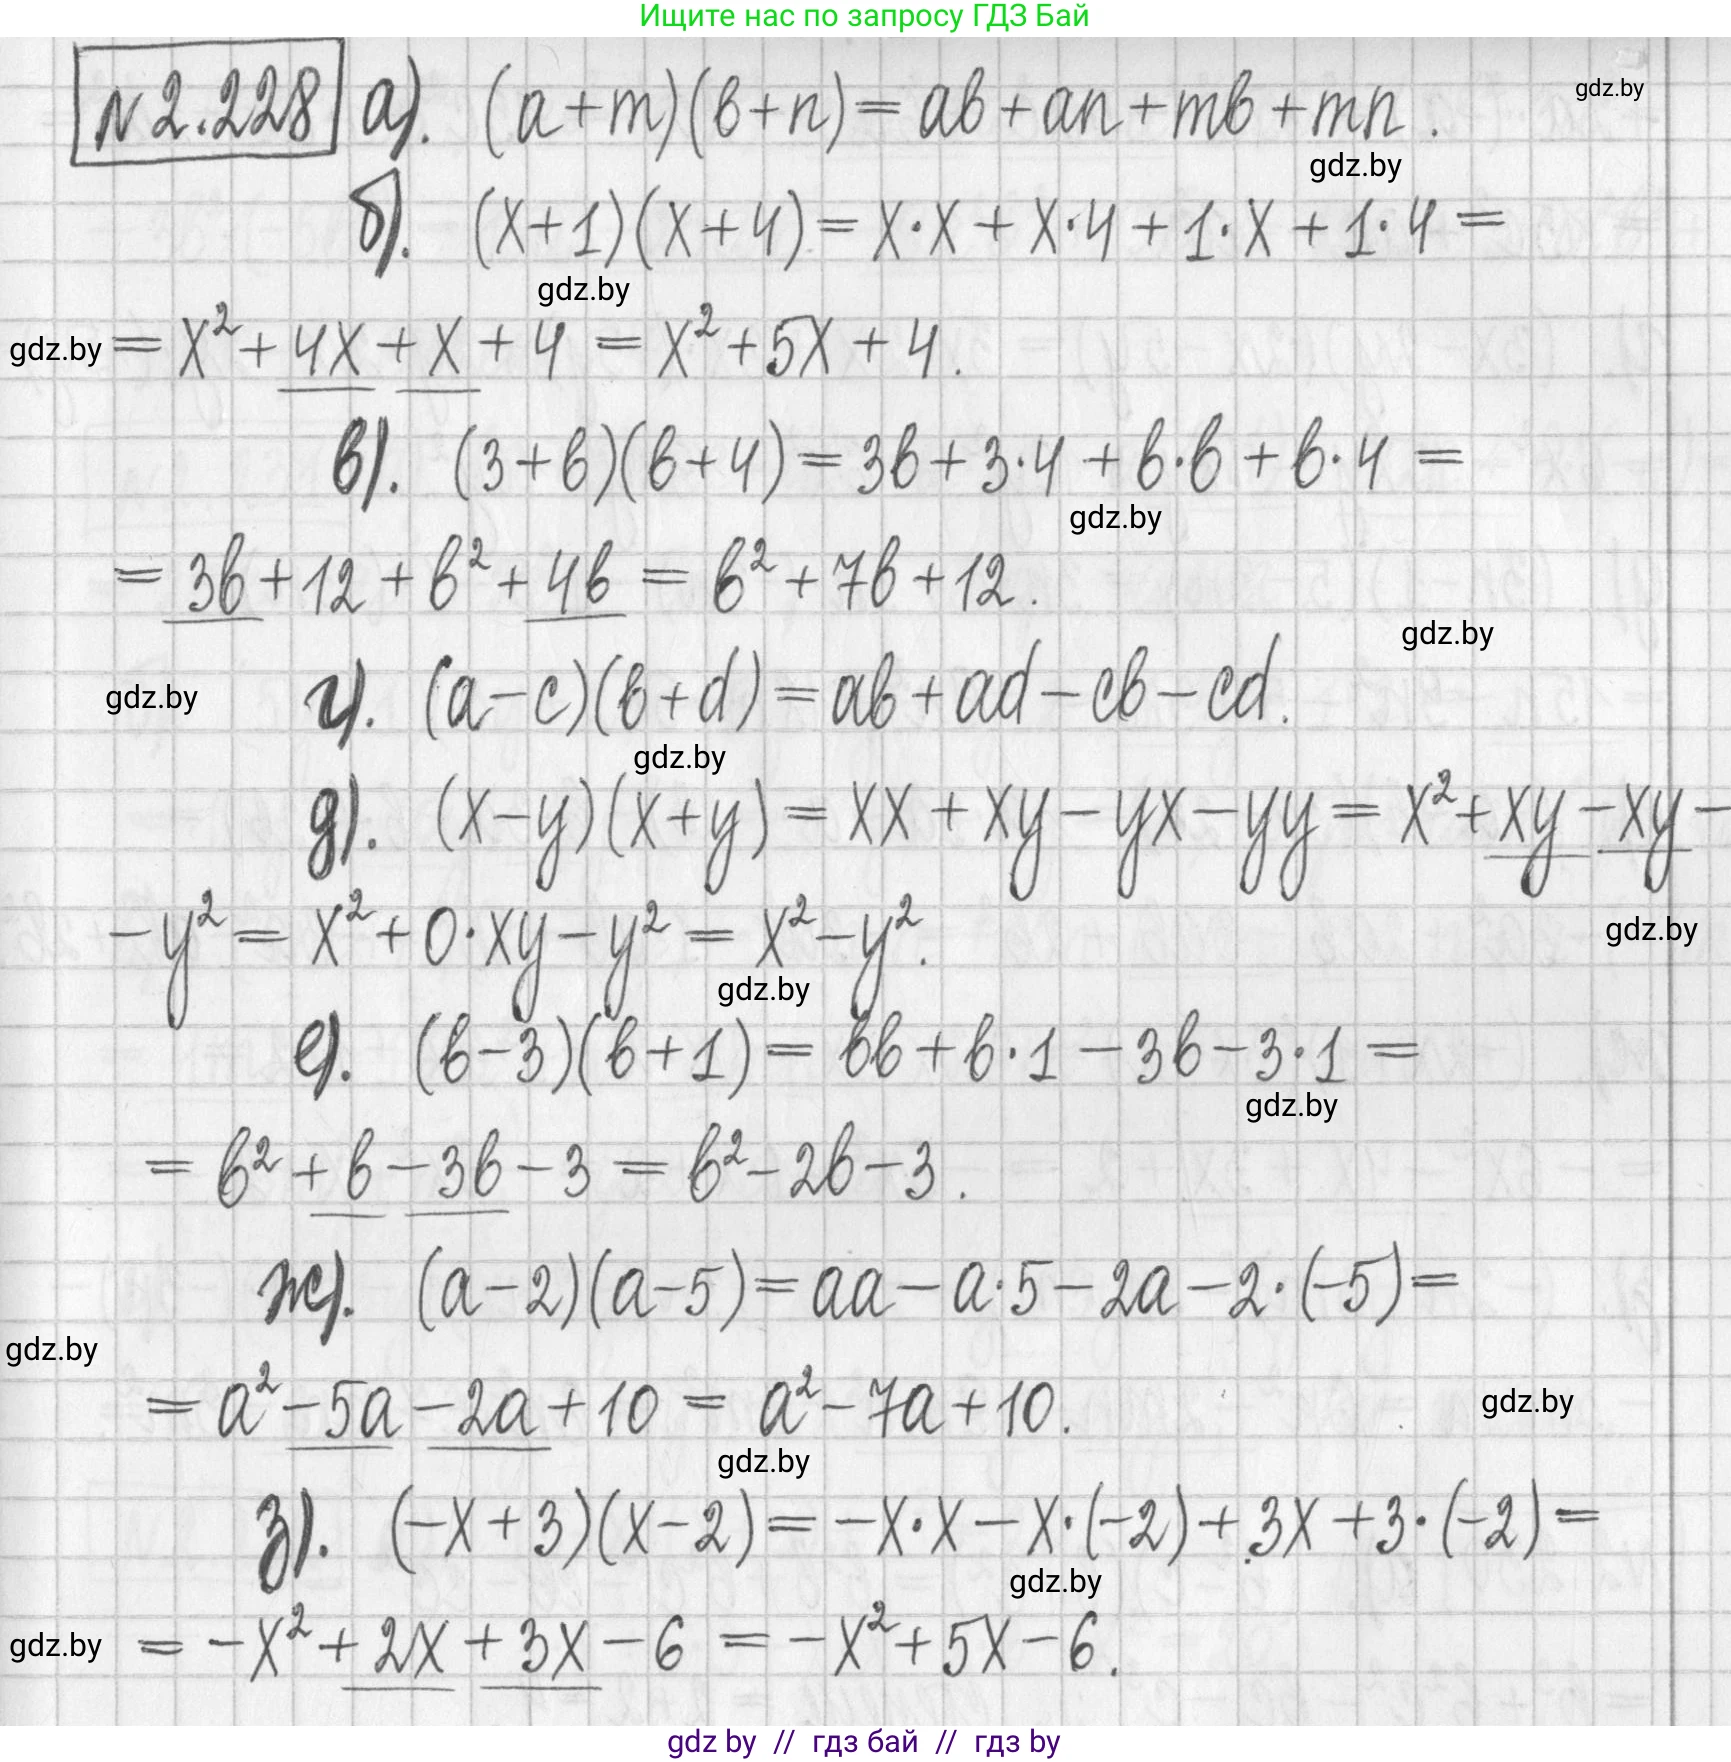 Ищите нас по запросу ГДЗ Бай
N 2.228 а). (a+m)(b+n)=ab+an+mb+mn.
gdz.by
gdz.by
б). (x+1)(x+4)=x·x+x·4+1·x+1·4=
gdz.by
gdz.by =x²+4x+x+4=x²+5x+4.
в). (3+b)(b+4)=3b+3·4+b·b+b·4=
gdz.by
=3b+12+b²+4b=b²+7b+12.
gdz.by
gdz.by г). (a-c)(b+d)=ab+ad-cb-cd.
gdz.by
д). (x-y)(x+y)=xx+xy-yx-yy=x²+xy-xy-
-y²=x²+0·xy-y²=x²-y².
gdz.by
gdz.by
е). (b-3)(b+1)=bb+b·1-3b-3·1=
gdz.by
=b²+b-3b-3=b²-2b-3.
ж). (a-2)(a-5)=aa-a·5-2a-2·(-5)=
gdz.by
=a²-5a-2a+10=a²-7a+10.
gdz.by
gdz.by
з). (-x+3)(x-2)=-x·x-x·(-2)+3x+3·(-2)=
gdz.by
gdz.by =-x²+2x+3x-6=-x²+5x-6.
gdz by // гдз бай // гдз by